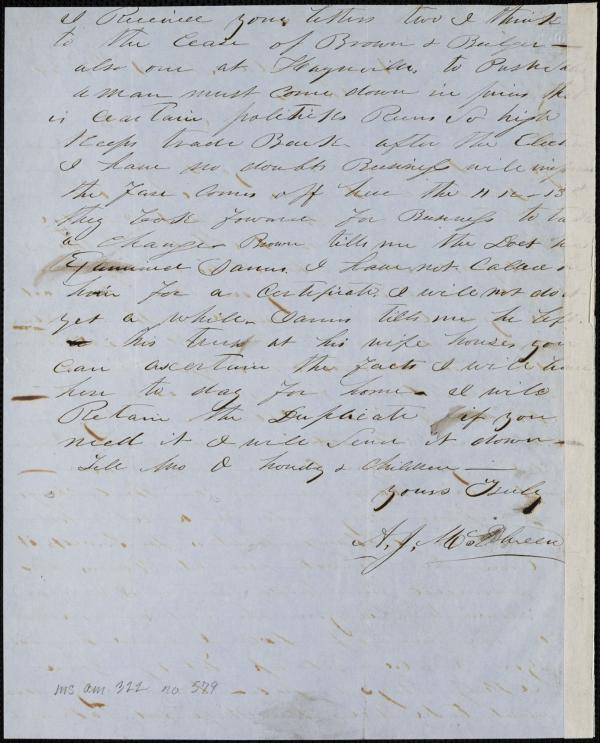 I Received your letters two I think
to the Case of Brown & Bulger —
also one at Haynsville to Push
a man must come down in price
is ceartain politicks Runs So high
Keeps trade Back after the Elect
I have no doubts Business will imp
the face comes off here the 11 12 13
they look foward for Business to
a change Brown tells me the Doct
Examined Sanns I have not Called on
him for a certificate I will not do it
yet a while Sanns tells me he left
his trunk at his wife houses you
can ascertain the facts I will
here to day for home I will
Retain the Duplicate if you
need it I will Send it down —
Tell Mrs O howdy & children —
yours Truly
A. J. McElveen
ms am 322 no. 579